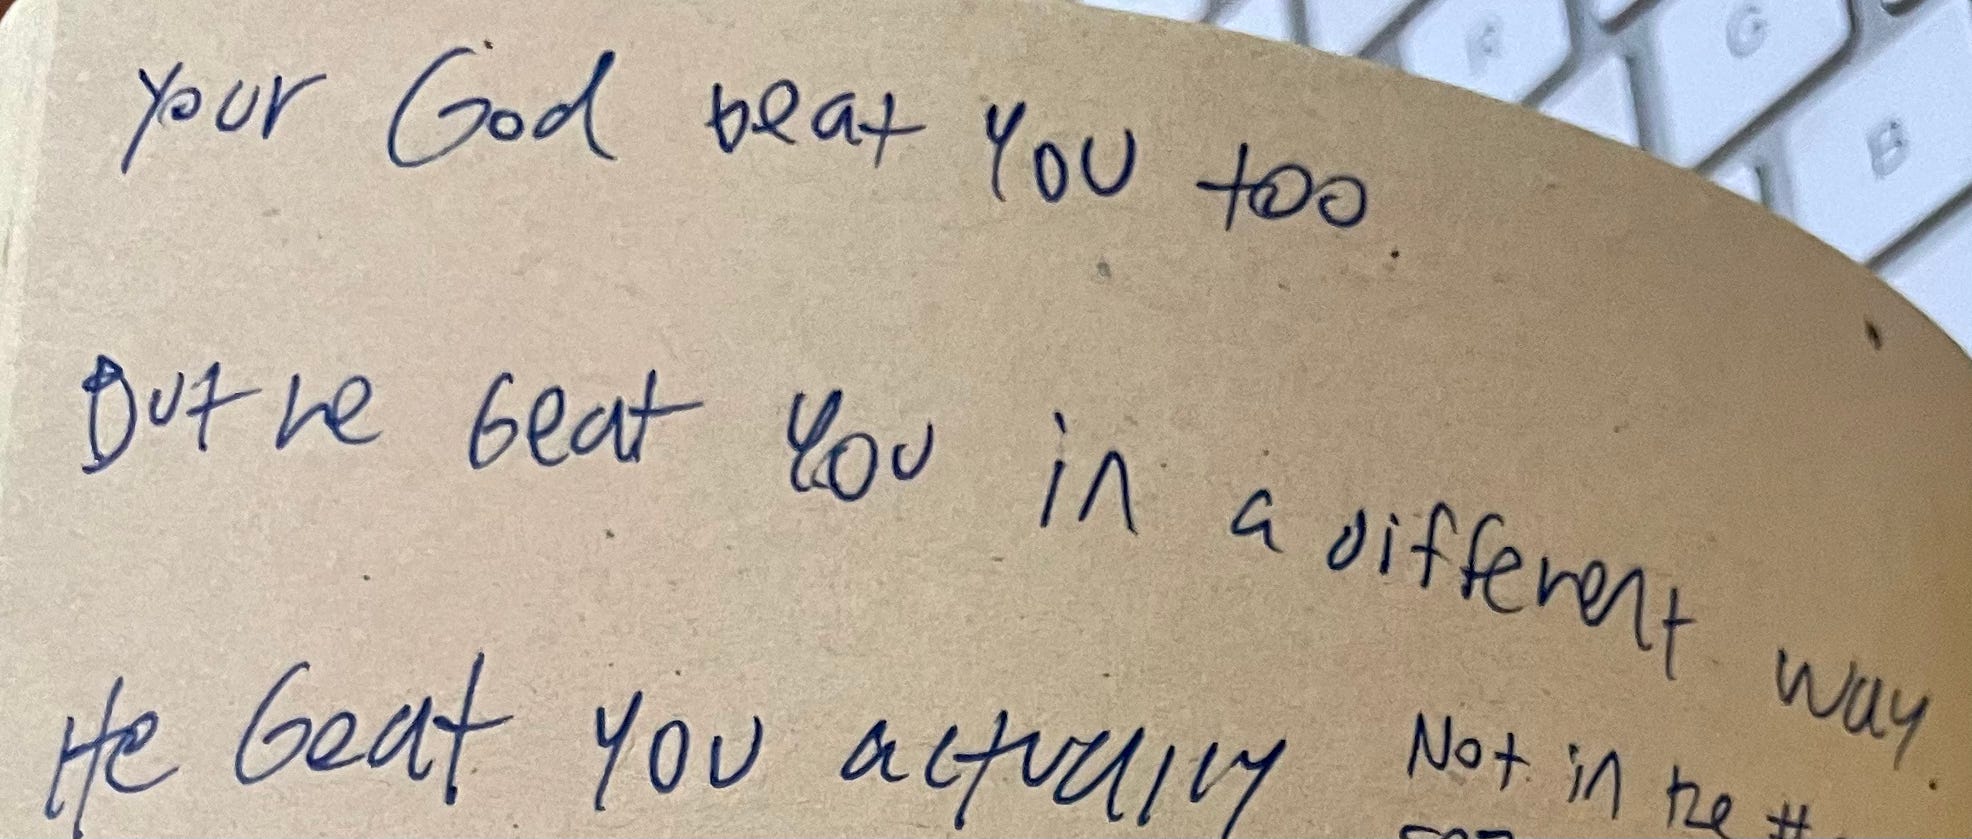 your God beat you too.
But he beat you in a different way.
He beat you actually Not in the #
C
G
B